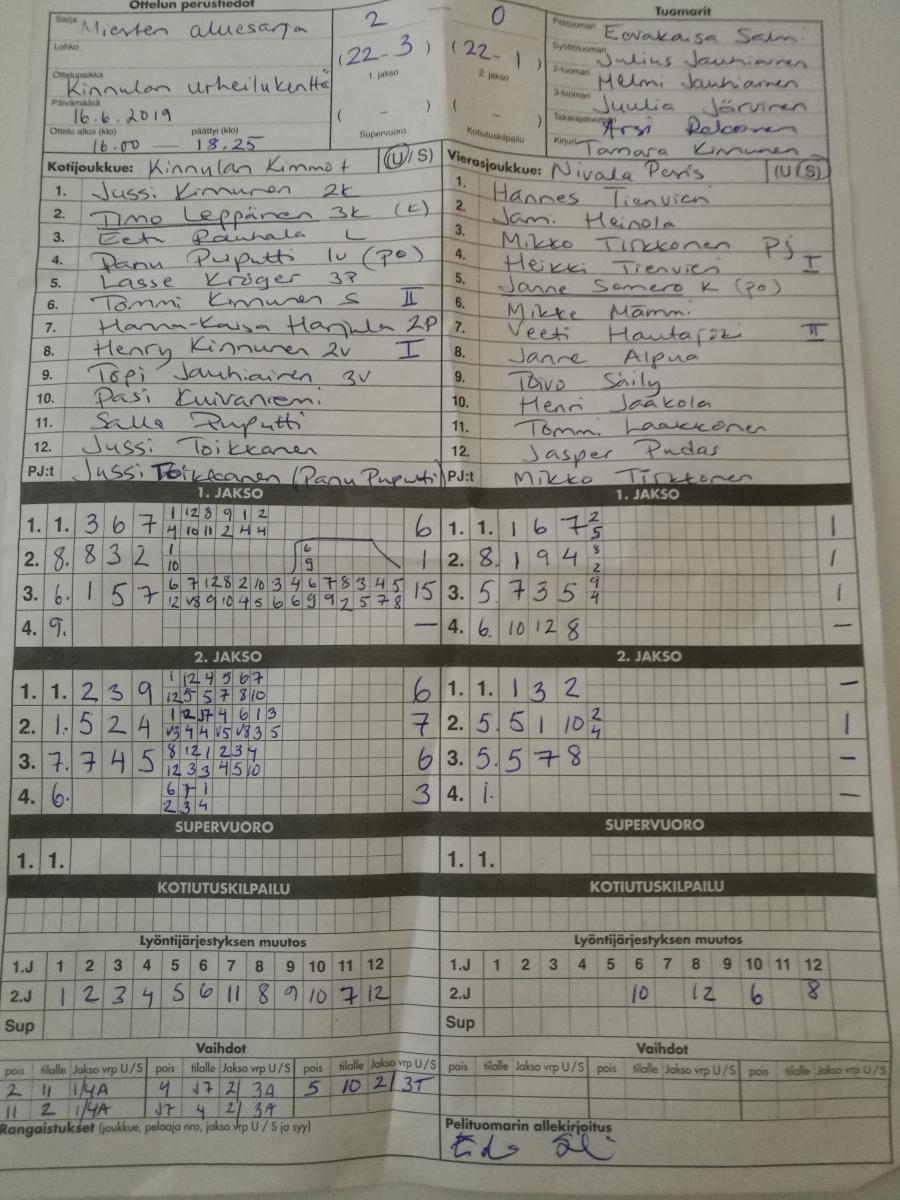 Ottelun perustiedot
Tuomarit
Sarja Miesten aluesarja
2 0
Pelituomari Eevakaisa Salmi
Lohko
(22-3) (22-1)
Syöttötuomari Julius Jauhiainen
1. jakso 2. jakso
2-tuomari Helmi Jauhiainen
Ottelupaikka Kinnulan urheilukenttä
3-tuomari Juulia Järvinen
Päivämäärä 16.6.2019
( - ) ( - )
Takarajatuomari
Ottelu alkoi (klo) päättyi (klo)
16.00 — 18.25
Supervuoro Kotiutuskilpailu
Kirjuri Tamara Kinnunen
Kotijoukkue: Kinnulan Kimmot (U/S)
Vierasjoukkue: Nivala Peris (U/S)
1. Jussi Kinnunen 2k
2. Timo Leppänen 3k (k)
3. Eetu Rauhala L
4. Panu Puputti 1v (po)
5. Lasse Kröger 3P
6. Tommi Kinnunen S II
7. Hanna-Kaisa Harjula 2P
8. Henry Kinnunen 2v I
9. Topi Jauhiainen 3v
10. Pasi Kuivaniemi
11. Salla Puputti
12. Jussi Toikkanen
PJ:t Jussi Toikkanen (Panu Puputti)
1. Hannes Tienvieri
2. Jami Heinola
3. Mikko Tirkkonen Pj
4. Heikki Tienvieri I
5. Janne Somero K (po)
6. Mikke Mämmi
7. Veeti Hautajoki II
8. Janne Alpua
9. Toivo Säily
10. Henri Jaakola
11. Tommi Laakkonen
12. Jasper Pudas
PJ:t Mikko Tirkkonen
1. JAKSO
1. 1. 3 6 7 1 12 8 9 1 2 6
4 10 11 2 4 4
2. 8. 8 3 2 1 6 1
10 9
3. 6. 1 5 7 6 7 12 8 2 10 3 4 6 7 8 3 4 5 15
12 √8 9 10 4 5 6 6 9 9 2 5 7 8
4. 9. —
1. JAKSO
1. 1. 1 6 7 2 1
5
2. 8. 1 9 4 8 1
2
3. 5. 7 3 5 9 1
4
4. 6. 10 12 8 —
2. JAKSO
1. 1. 2 3 9 1 12 4 5 6 7 6
12 5 5 7 8 10
2. 1. 5 2 4 1 2 J7 4 6 1 3 7
√3 4 4 √5 √8 3 5
3. 7. 7 4 5 8 12 1 2 3 4 6
12 3 3 4 5 10
4. 6. 6 7 1 3
2 3 4
2. JAKSO
1. 1. 1 3 2 —
2. 5. 5 1 10 2 1
4
3. 5. 5 7 8 —
4. 1. —
SUPERVUORO
1. 1.
SUPERVUORO
1. 1.
KOTIUTUSKILPAILU
KOTIUTUSKILPAILU
Lyöntijärjestyksen muutos
1.J 1 2 3 4 5 6 7 8 9 10 11 12
2.J 1 2 3 4 5 6 11 8 9 10 7 12
Sup
Lyöntijärjestyksen muutos
1.J 1 2 3 4 5 6 7 8 9 10 11 12
2.J 10 12 6 8
Sup
Vaihdot
pois tilalle Jakso vrp U/S pois tilalle Jakso vrp U/S pois tilalle Jakso vrp U/S
2 11 1/4A 4 J7 2/3A 5 10 2/3T
11 2 1/4A J7 4 2/3A
Vaihdot
pois tilalle Jakso vrp U/S pois tilalle Jakso vrp U/S pois tilalle Jakso vrp U/S
Rangaistukset (joukkue, pelaaja nro, jakso vrp U / S ja syy)
Pelituomarin allekirjoitus